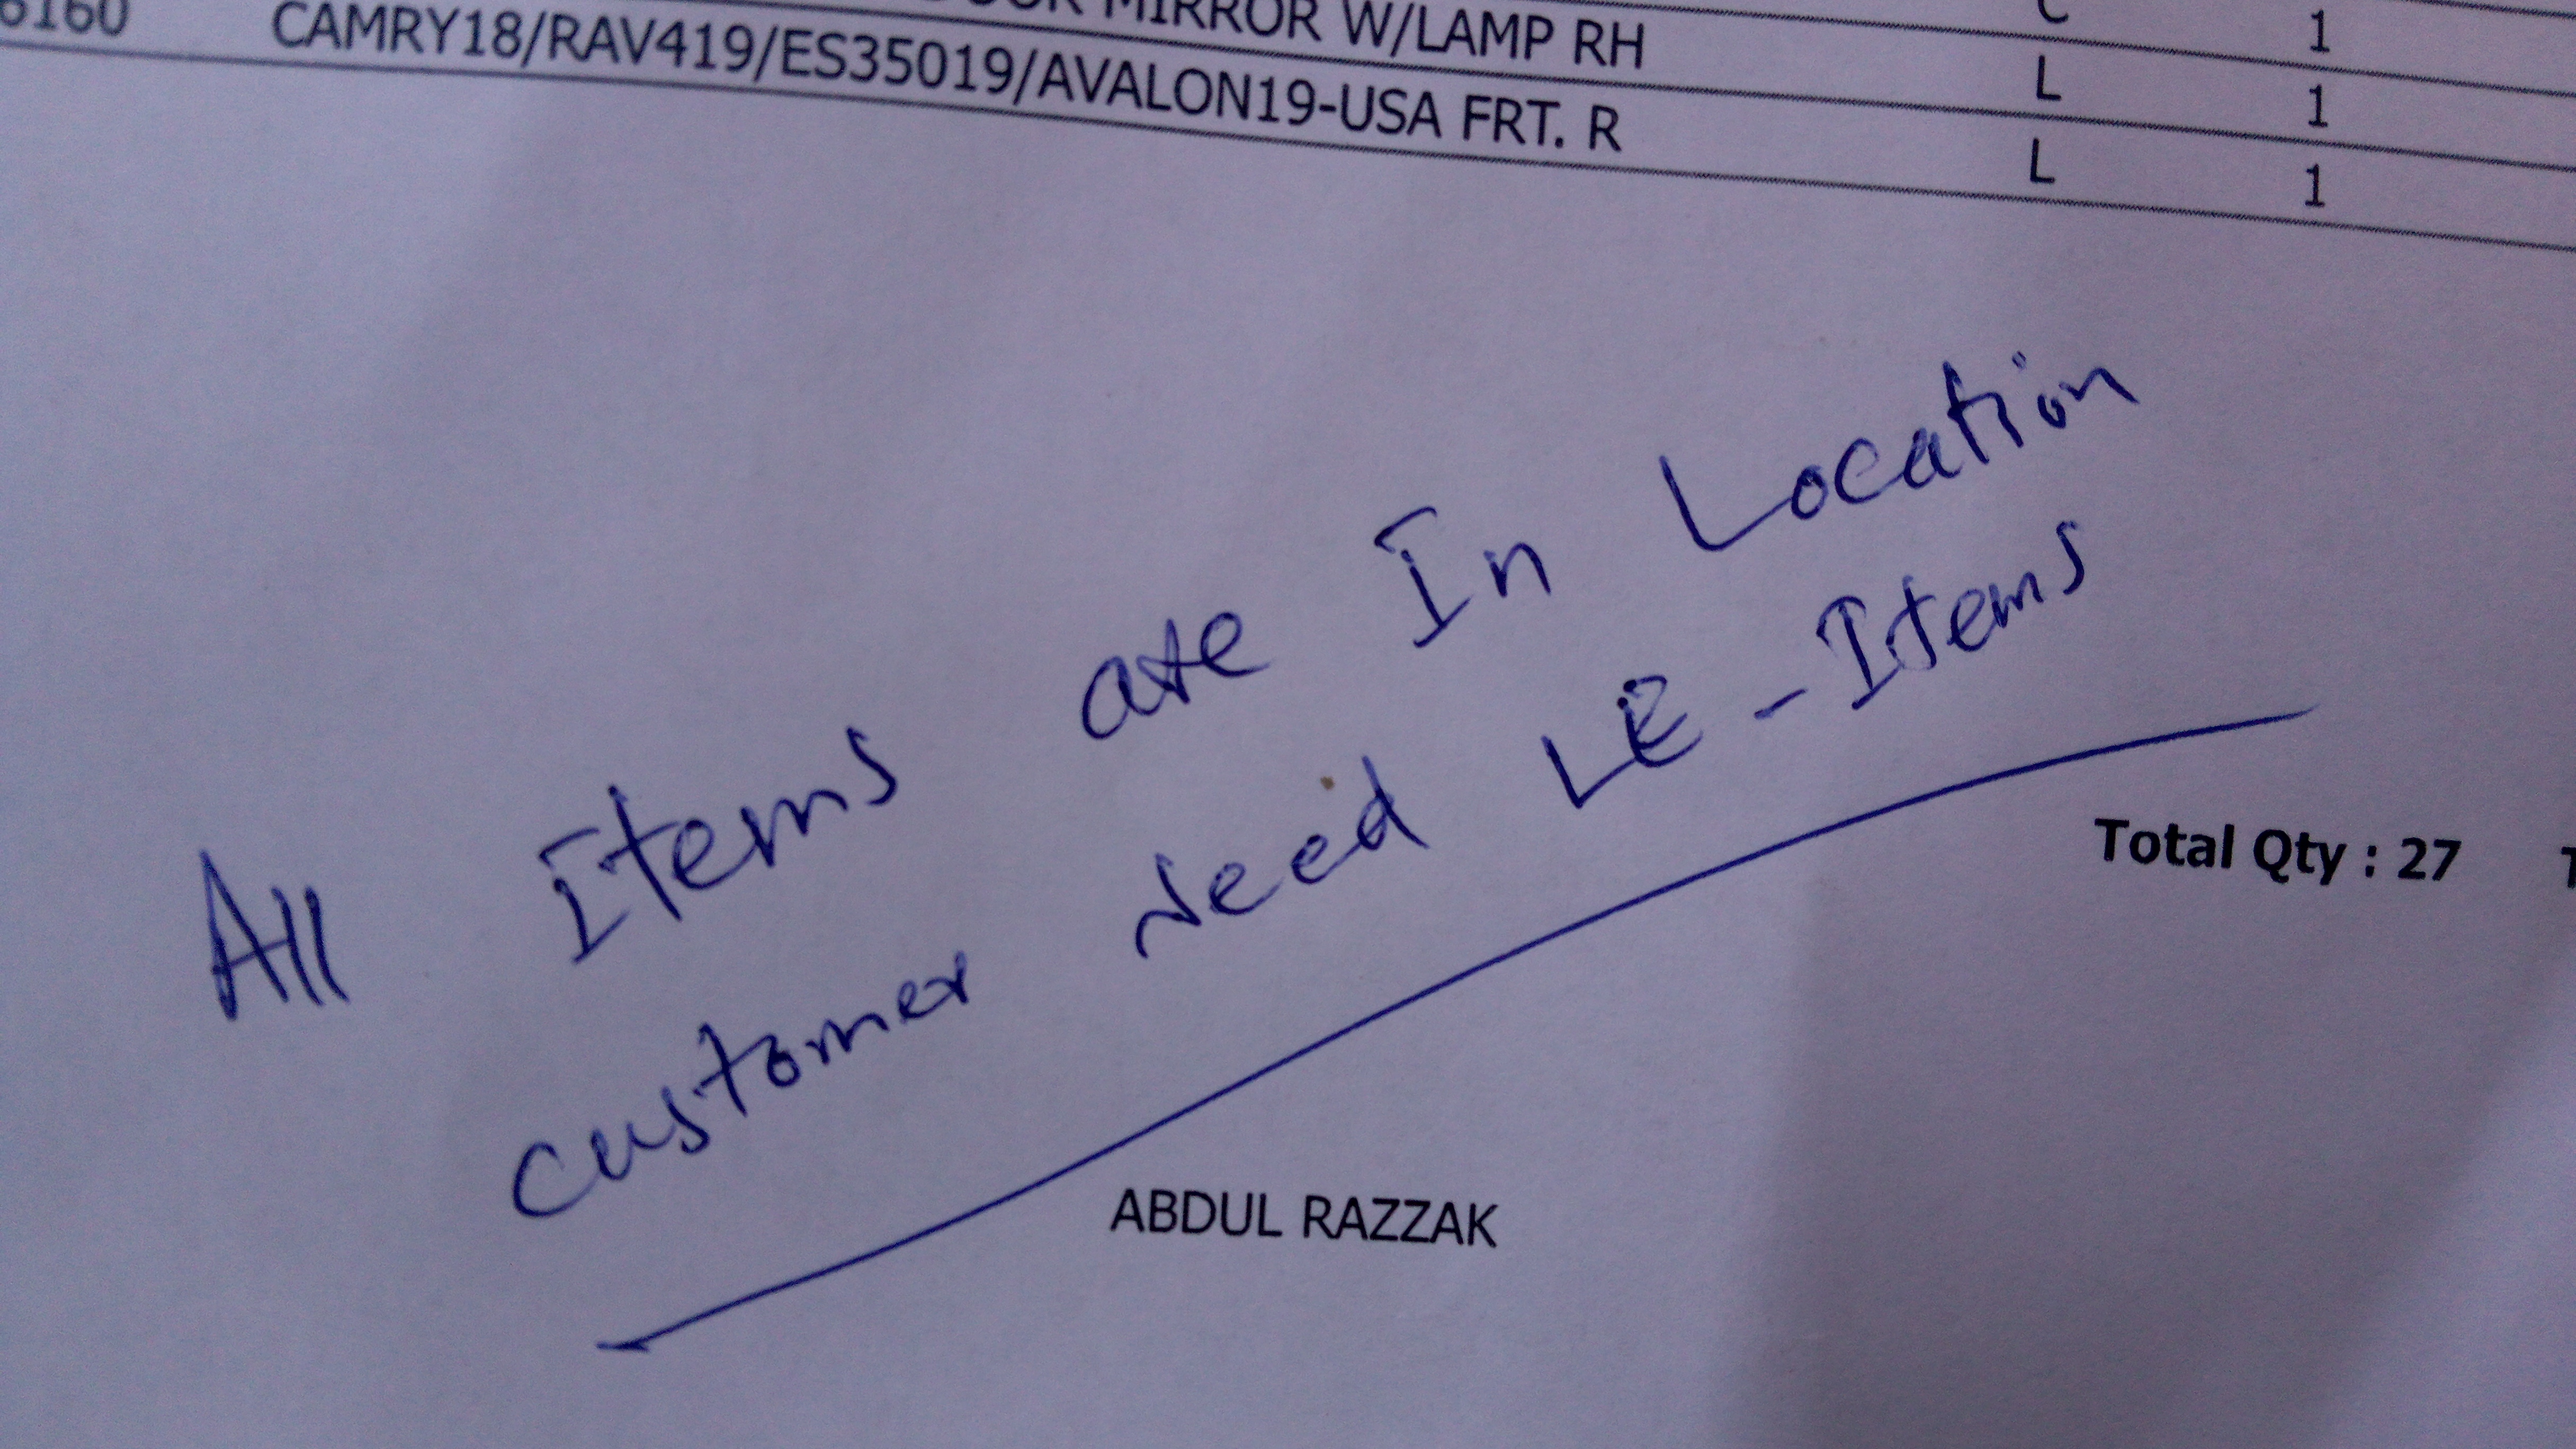 MIRROR W/LAMP RH C 1
6160 CAMRY18/RAV419/ES35019/AVALON19-USA FRT. R L 1
L 1
All Items are In Location
customer Need LE - Items
Total Qty : 27
ABDUL RAZZAK